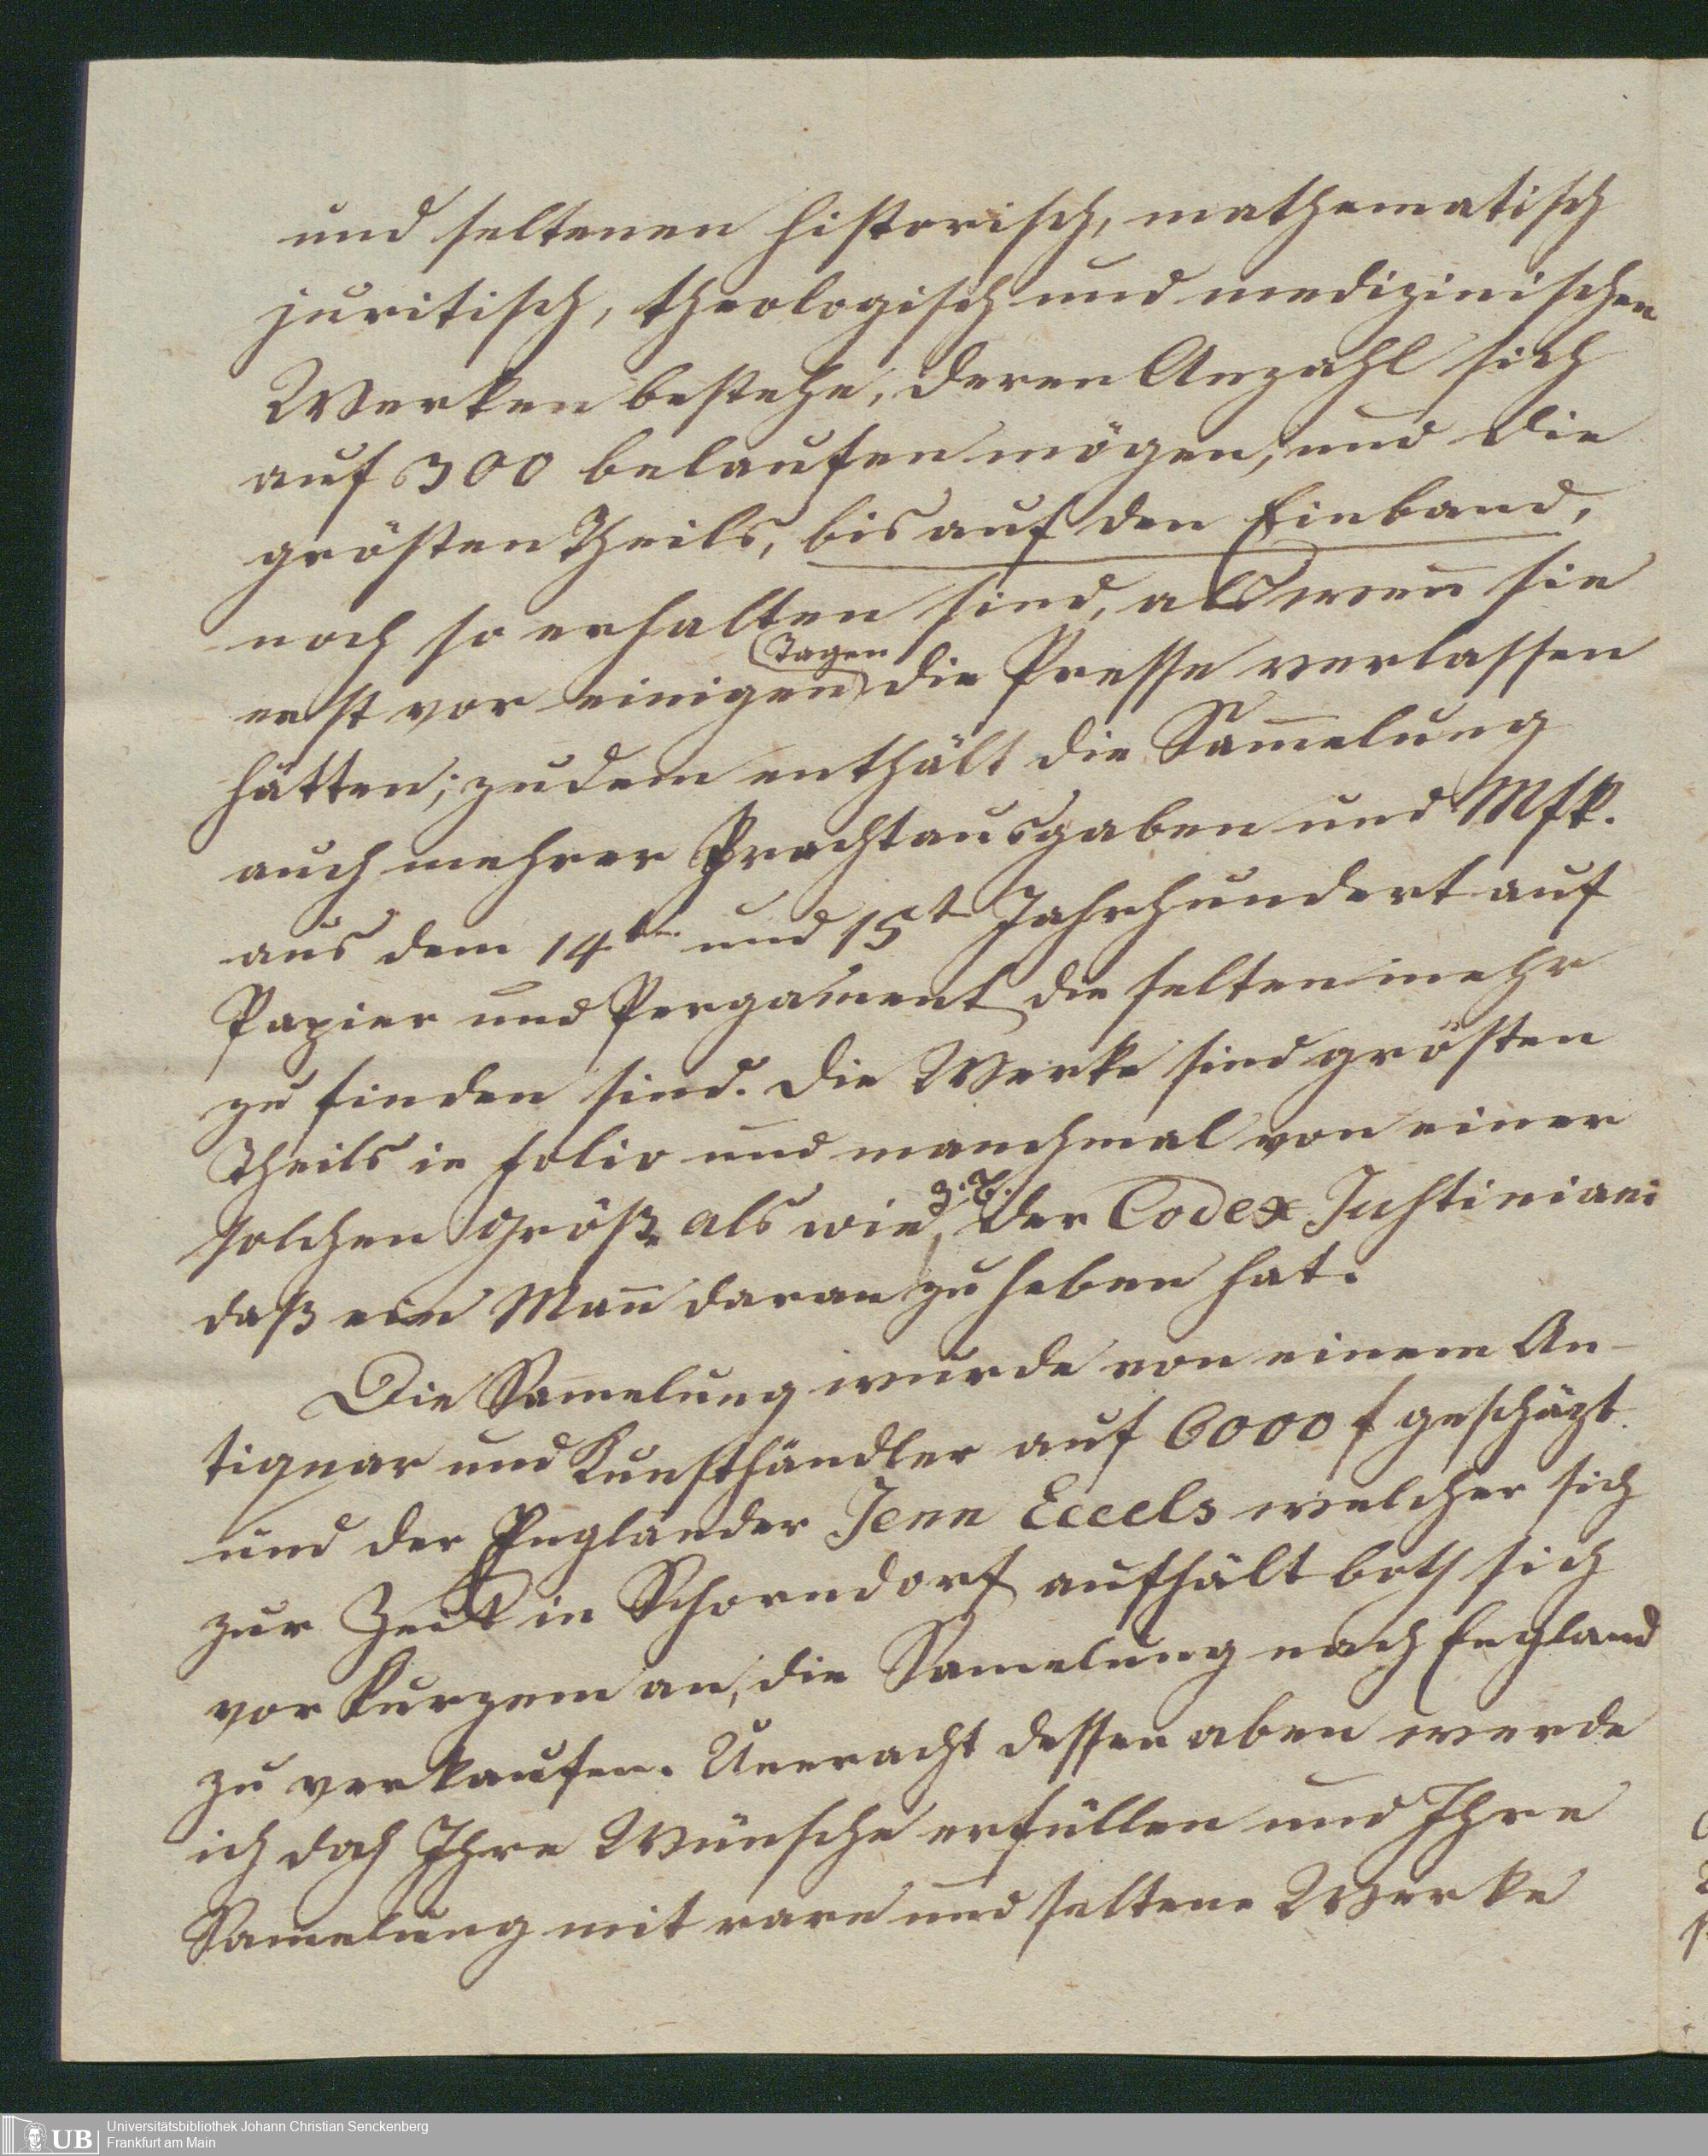 und seltenen historisch, mathematisch
juritisch, theologisch und medizinischen
Werken bestehe, deren Anzahl sich
auf 300 belaufen mögen, und die
grösten Theils, bis auf den Einband,
noch so erhalten sind, als wen̅ sie
erst vor einigen Tagen die Presse verlassen
hätten; zudem enthält die Sam̅elung
auch mehrer Prachtausgaben und Msk.
aus dem 14t und 15t Jahrhundert auf
Papier und Pergament die selten mehr
zu finden sind. Die Werke sind grösten
Theils in folio und manchmal von einer
solchen Größe als wie z. B. der Codex Justiniani
daß ein Man̅ daran zu heben hat.
Die Sam̅elung wurde von einem An-
tiquar und Kunsthändler auf 6000 f geschäzt
und der Engländer Jenn Eccels welcher sich
zur Zeit in Schorndorf aufhält both sich
vor Kurzem an, die Samelung nach England
zu verkaufen. Uneracht dessen aben werde
ich doch Ihre Wünsche erfüllen und Ihre
Samelung mit rare und seltene Werke
UB
Universitätsbibliothek Johann Christian Senckenberg
Frankfurt am Main